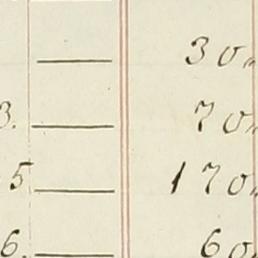 — 30„
3. — 70„
5 — 170„
6. — 60„